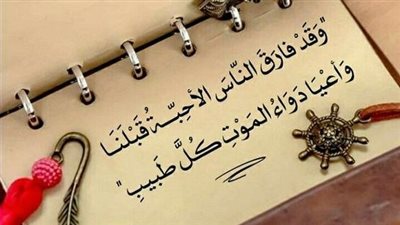 "وَقَدْ فَارَقَ النَّاسَ الأَحِبَّةُ قَبْلَنَا
وَأَعْيَا دَوَاءُ المَوْتِ كُلَّ طَبِيبِ"